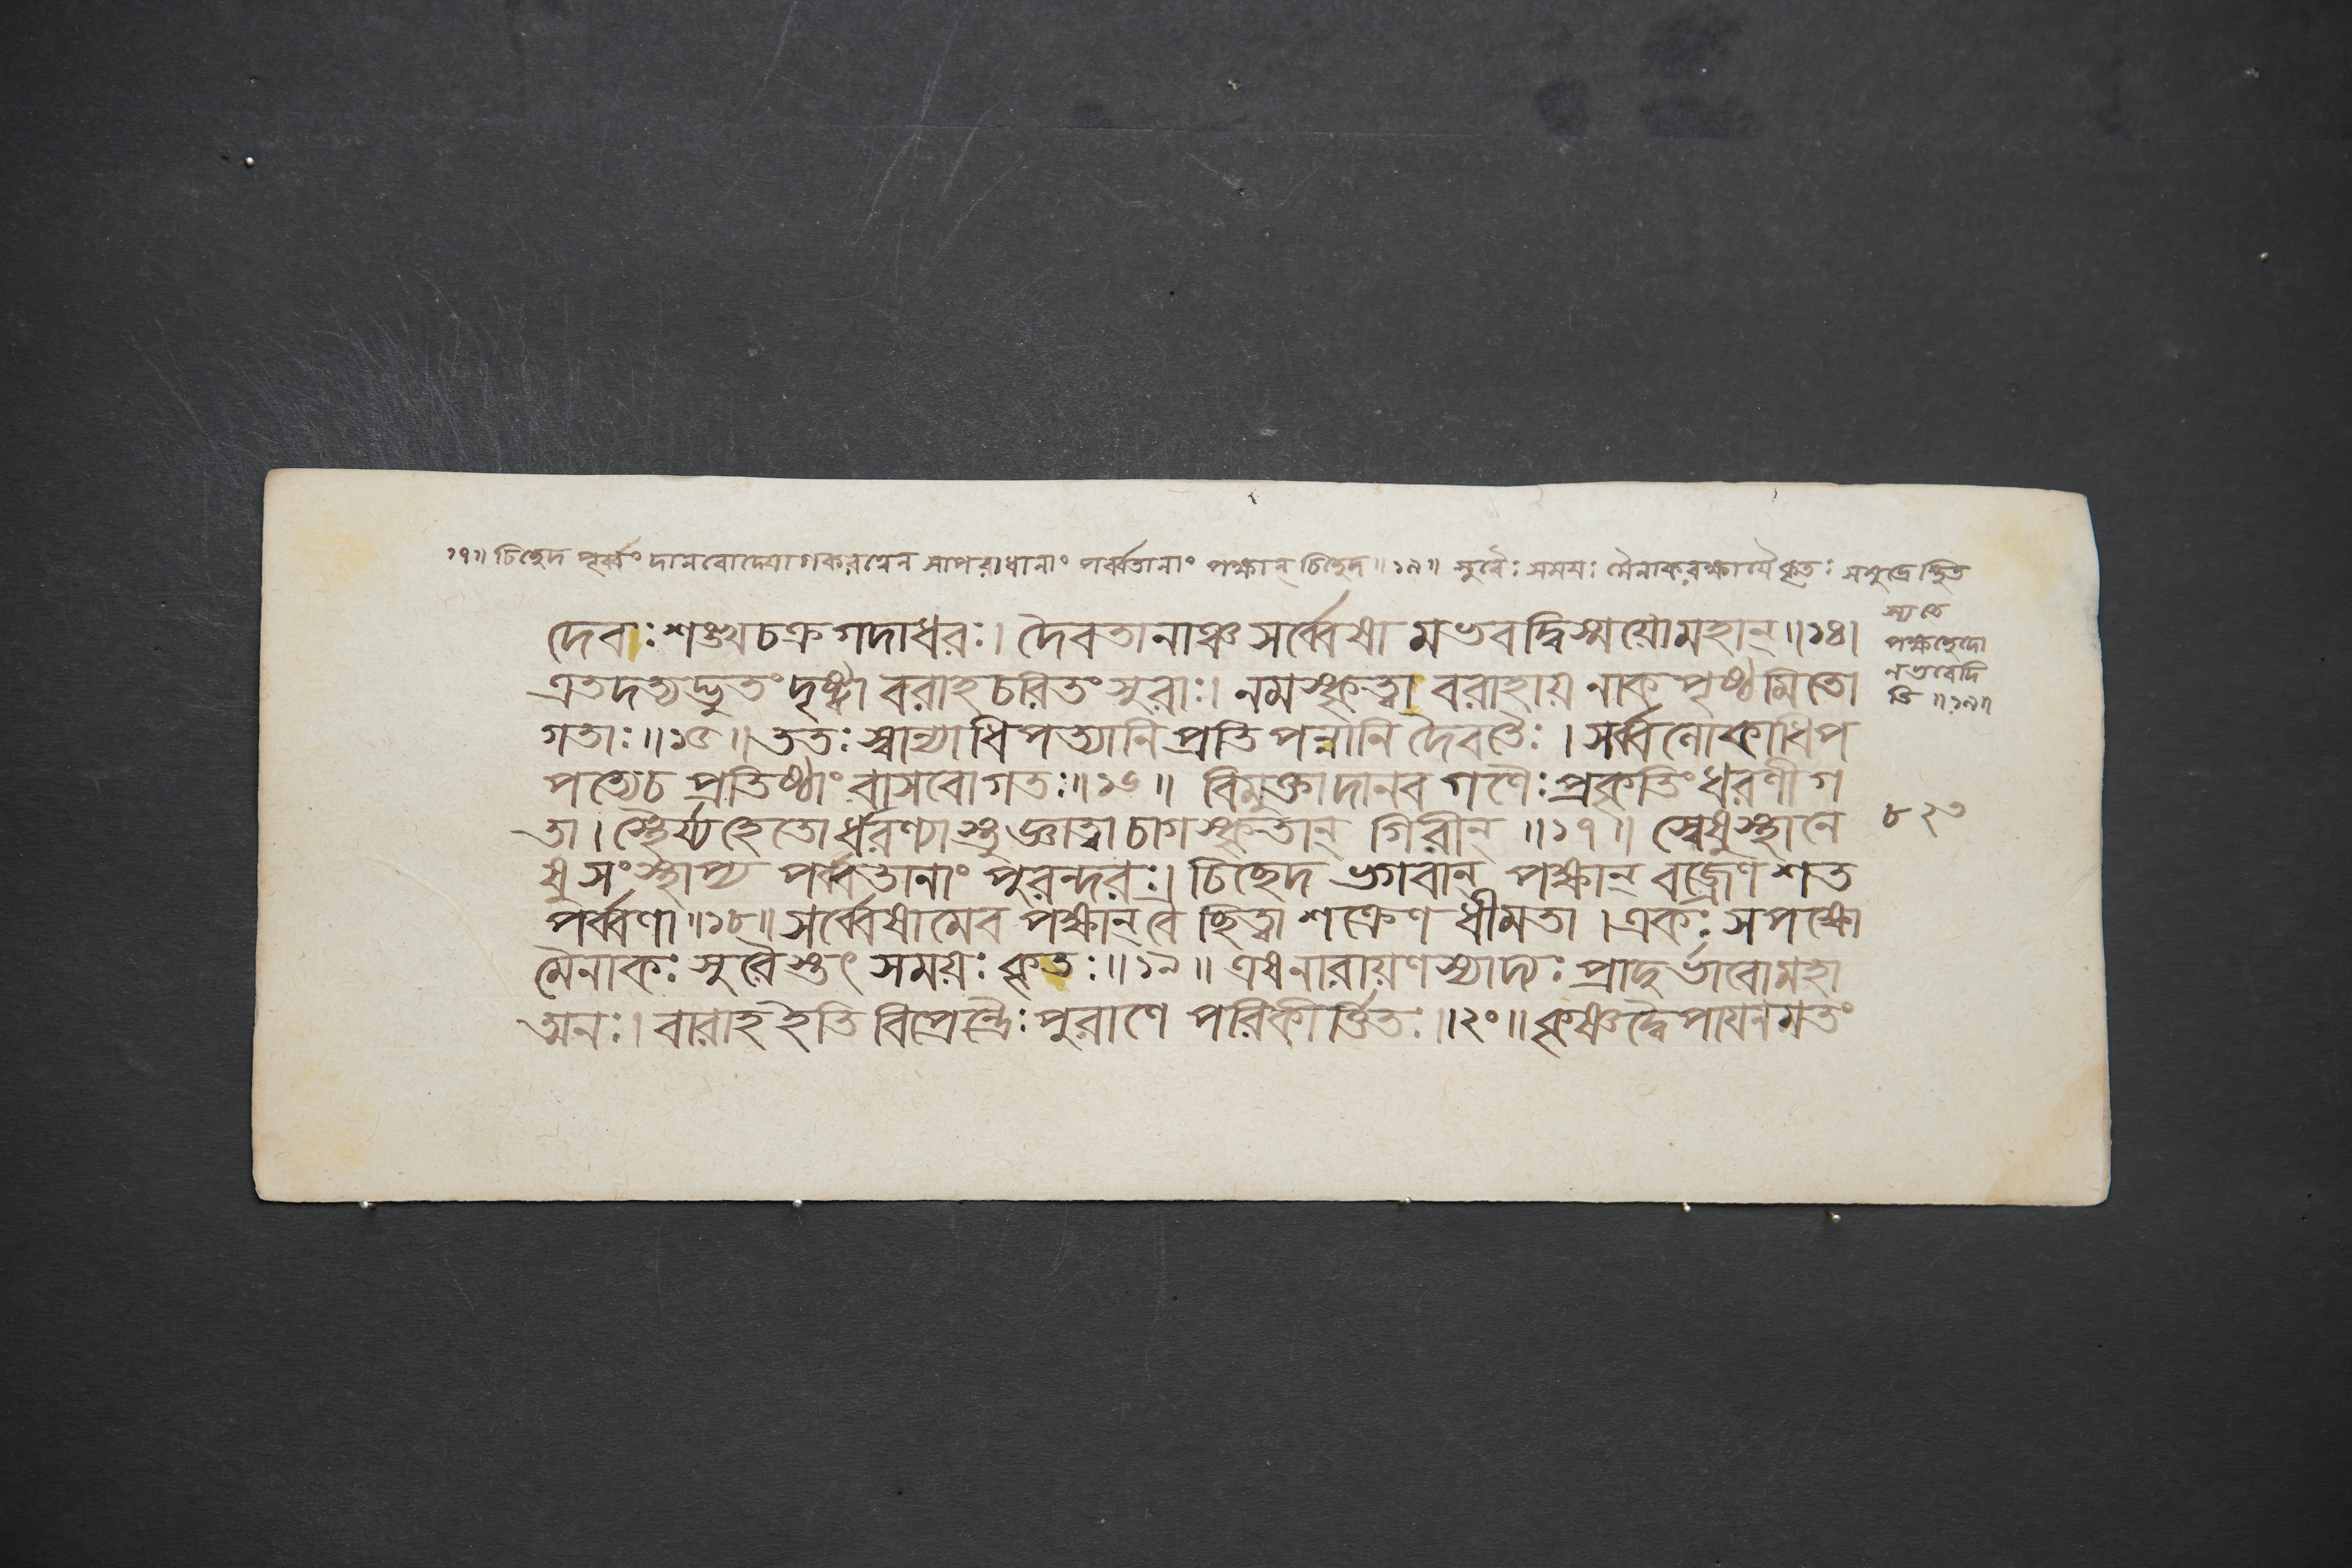 ১৭॥ চিচ্ছেদ পূর্ব্বং দানবোদ্যোগকরত্বেন সাপরাধানাং পর্ব্বতানাং পক্ষান্ চিচ্ছেদ॥১৮॥ সুরৈঃ সময়ঃ মৈনাকরক্ষার্থং কৃতঃ সমুদ্রেস্থিত
স্য তে
পক্ষচ্ছেদো
নভবেদি
তি ॥১৯॥
দেবাঃ শঙ্খচক্রগদাধরঃ। দৈবতানাঞ্চ সর্ব্বেষা মভবদ্বিস্ময়োমহান্॥১৪।
এতদত্যদ্ভুতং দৃষ্ট্বা বরাহচরিতং সুরাঃ। নমস্কৃত্বা বরাহায় নাকপৃষ্ঠমিতো
গতাঃ॥১৫॥ততঃ স্বান্যাধিপত্যানি প্রতিপন্নানি দৈবতৈঃ। সর্ব্বলোকাধিপ
পত্যেচ প্রতিষ্ঠাং বাসবোগতঃ॥১৬॥ বিমুক্তাদানব গণৈঃ প্রকৃতিং ধরণীগ
তা। স্থৈর্য্যহেতোর্ধরণ্যাস্তু জ্ঞাত্বাচাগস্কৃতান্ গিরীন্ ॥১৭॥ স্বেষুস্থানে
ষুসংস্থাপ্য পর্ব্বতানাং পুরন্দরঃ। চিচ্ছেদ ভগবান্ পক্ষান্ বজ্রেণ শত
পর্ব্বণা॥১৮॥ সর্ব্বেষামেব পক্ষান্ বৈ ছিত্বা শক্রেণ ধীমতা।একঃ সপক্ষো
মৈনাকঃ সুরৈস্তৎ সময়ঃ কৃতঃ॥১৯॥ এষনারায়ণস্যাদ্যঃ প্রাদুর্ভাবোমহা
ত্মনঃ। বারাহ ইতি বিপ্রেন্দ্রৈঃ পুরাণে পরিকীর্ত্তিতঃ॥২০॥ কৃষ্ণদ্বৈপায়নমতং
৮২৩